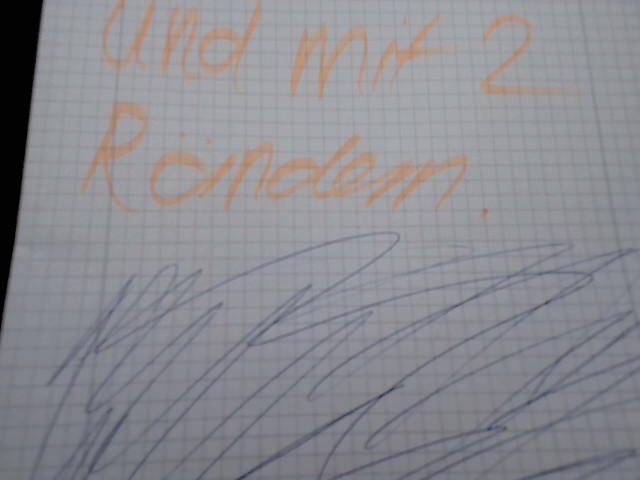 Und mit 2
Rändern.